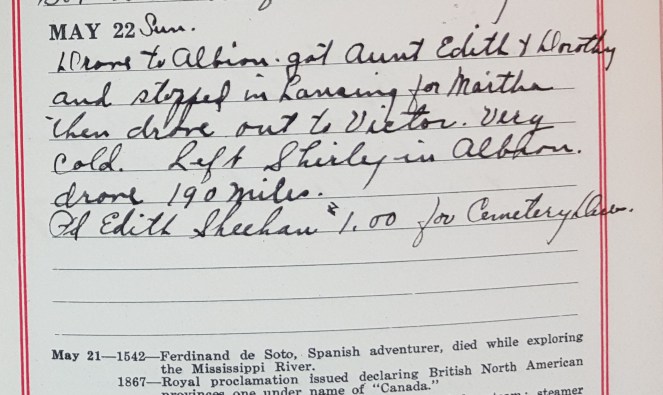 MAY 22 Sun.
Drove to Albion. got Aunt Edith & Dorothy
and stopped in Lansing for Martha
then drove out to Victor. Very
Cold. Left Shirley in Albion.
drove 190 miles.
Pd Edith Sheehan $1.00 for Cemetery
May 21—1542—Ferdinand de Soto, Spanish adventurer, died while exploring
the Mississippi River.
1867—Royal proclamation issued declaring British North American
provinces one under name of "Canada."
steamer